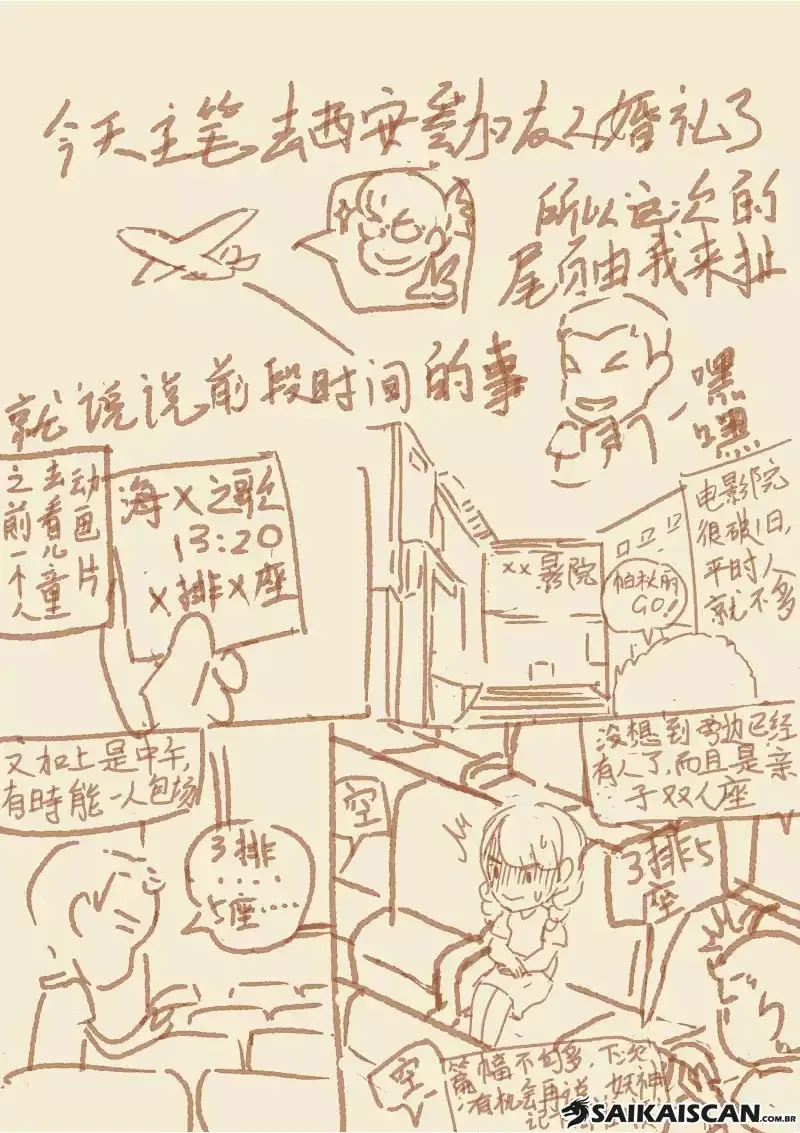 今天主笔去西安参加友人婚礼了
所以这次的
尾页由我来扯
就说说前段时间的事
嘿
嘿
之前一个人
去看儿童
动画片
海X之歌
13:20
X排X座
XX影院
怕秋莉
GO!
电影院
很破旧,
平时人
就不多
又加上是中午,
有時能一人包场
3排
....
5座......
空
没想到两边已经
有人了,而且是亲
子双人座
3排5
座
空
篇幅不够多,下次
有机会再说,妖神
SAIKAISCAN.COM.BR